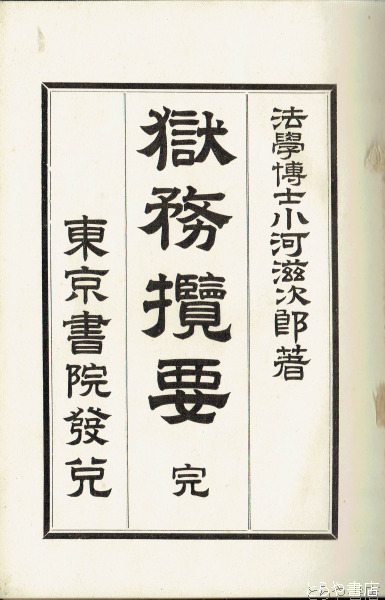 法學博士小河滋次郎著
獄務攬要 完
東京書院發兌
とらや書店